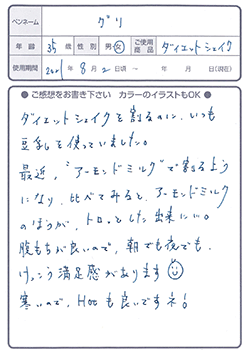 ペンネーム グリ
年齢 35 歳 性別 男・女 ご使用商品 ダイエットシェイク
使用期間 2001年 8月 2日頃 ~ 年 月 日(現在)
● ご感想をお書き下さい カラーのイラストもOK ●
ダイエットシェイクを割るのに、いつも
豆乳を使っていました。
最近、"アーモンドミルク"で割るよう
になり、比べてみると、アーモンドミルク
のほうが、トロッとした出来に!!。
腹もちが良いので、朝でも夜でも、
けっこう満足感があります
寒いので、Hotも良いですネ!